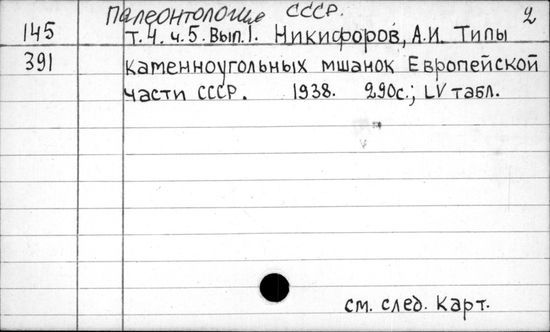 Палеонтология СССР. 2
145 т.4. ч.5. Вып.1. Никифоров, А.И. Типы
391 каменноугольных мшанок Европейской
части СССР. 1938. 290с.; LV табл.
см. след. карт.